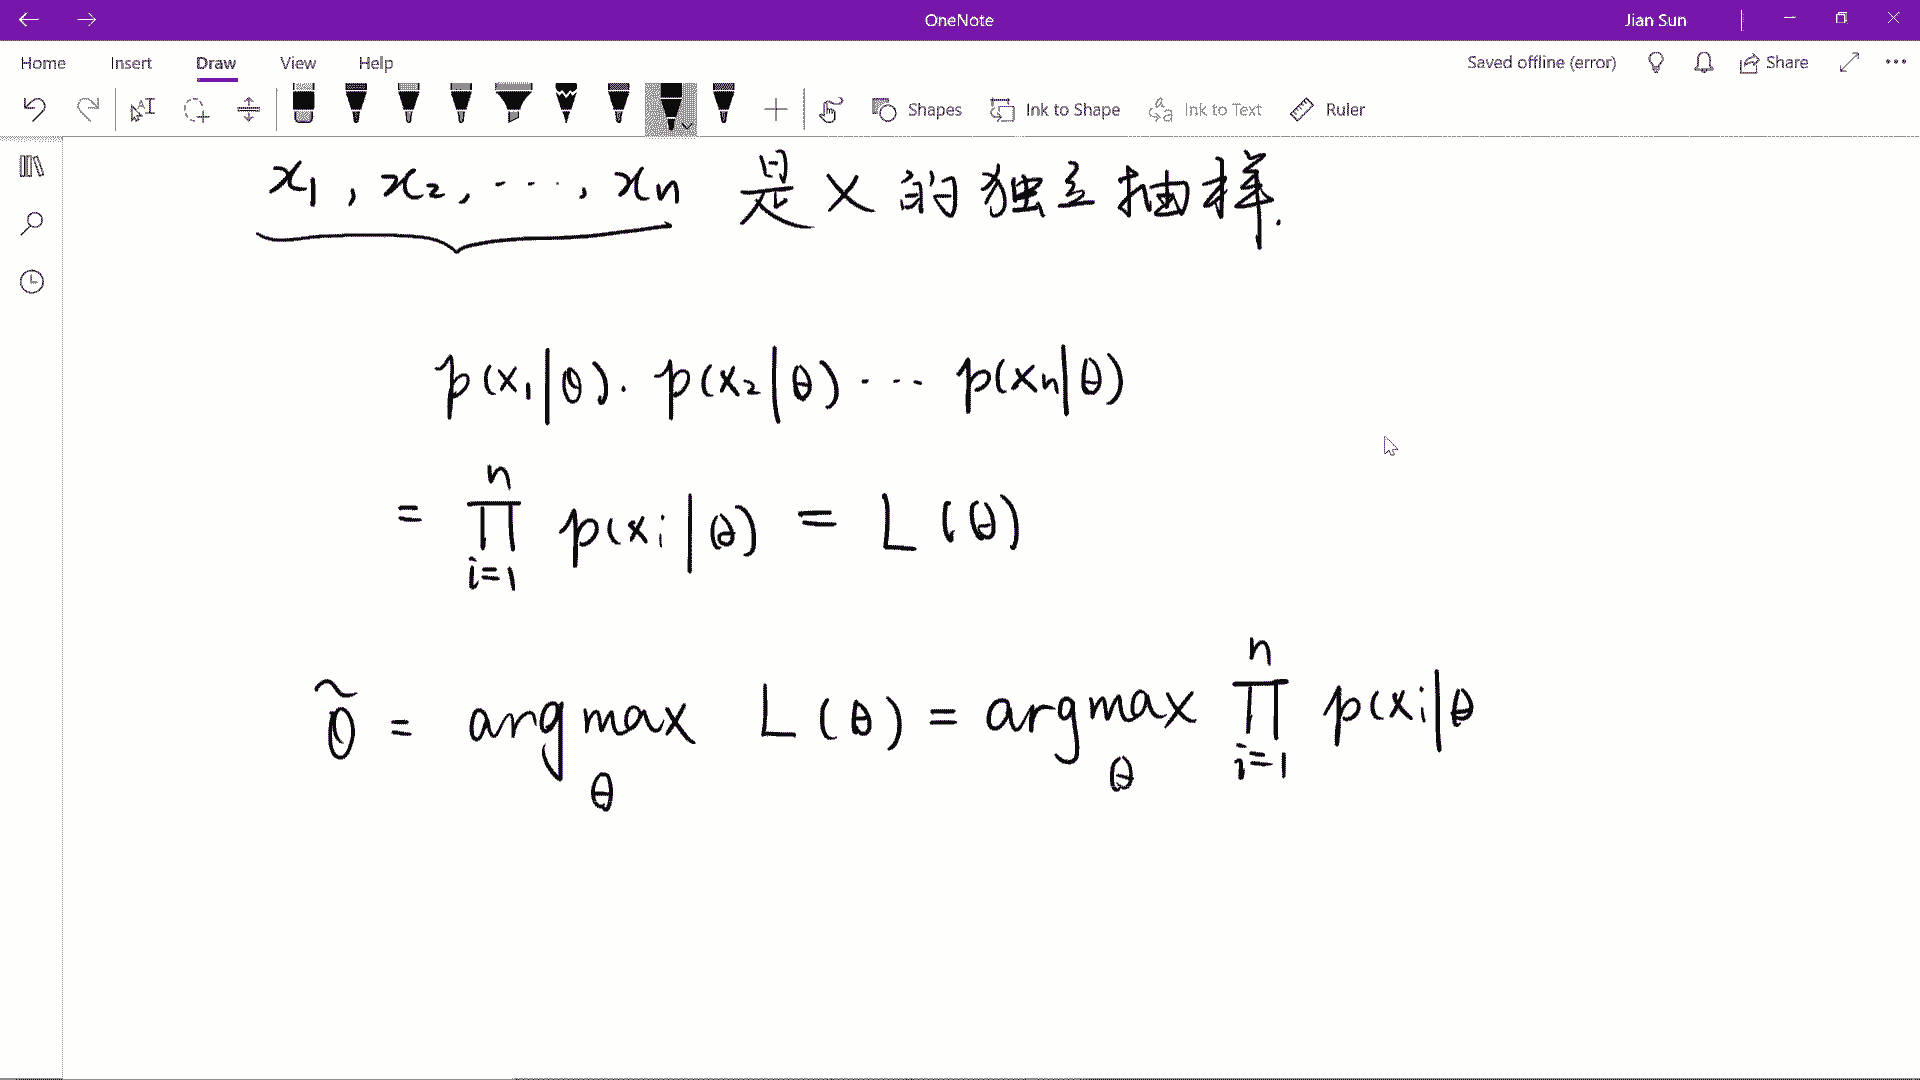 OneNote
Jian Sun
Home Insert Draw View Help
Saved offline (error) Share
Shapes Ink to Shape Ink to Text Ruler
x₁, x₂, ⋯, xₙ 是 X 的独立抽样.
p(x₁|θ)· p(x₂|θ) ⋯ p(xₙ|θ)
= ∏ᵢ₌₁ⁿ p(xᵢ|θ) = L(θ)
θ̃ = argmax_θ L(θ) = argmax_θ ∏ᵢ₌₁ⁿ p(xᵢ|θ